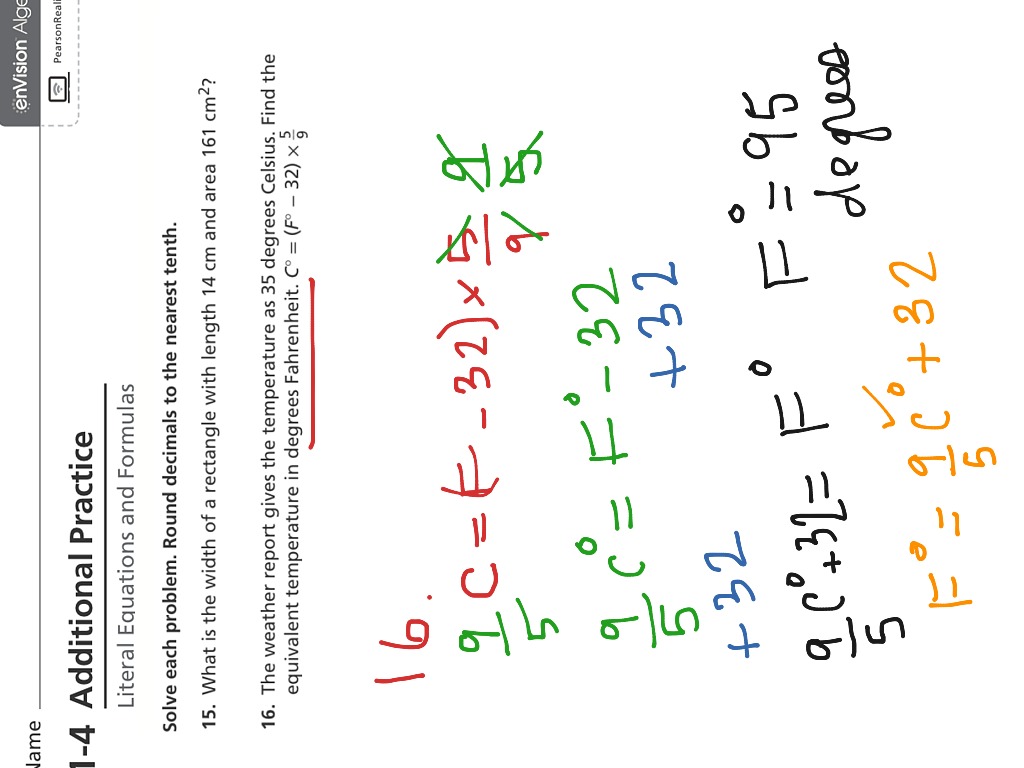 enVision Alge
PearsonReali
Name
1-4 Additional Practice
Literal Equations and Formulas
Solve each problem. Round decimals to the nearest tenth.
15. What is the width of a rectangle with length 14 cm and area 161 cm²?
16. The weather report gives the temperature as 35 degrees Celsius. Find the
equivalent temperature in degrees Fahrenheit. C° = (F° − 32) × 5/9
16.
9/5 C = (F - 32) × 5/9 9/5
9/5 C° = F° - 32
+32 +32
9/5 C° + 32 = F° F° = 95
degrees
F° = 9/5 C° + 32